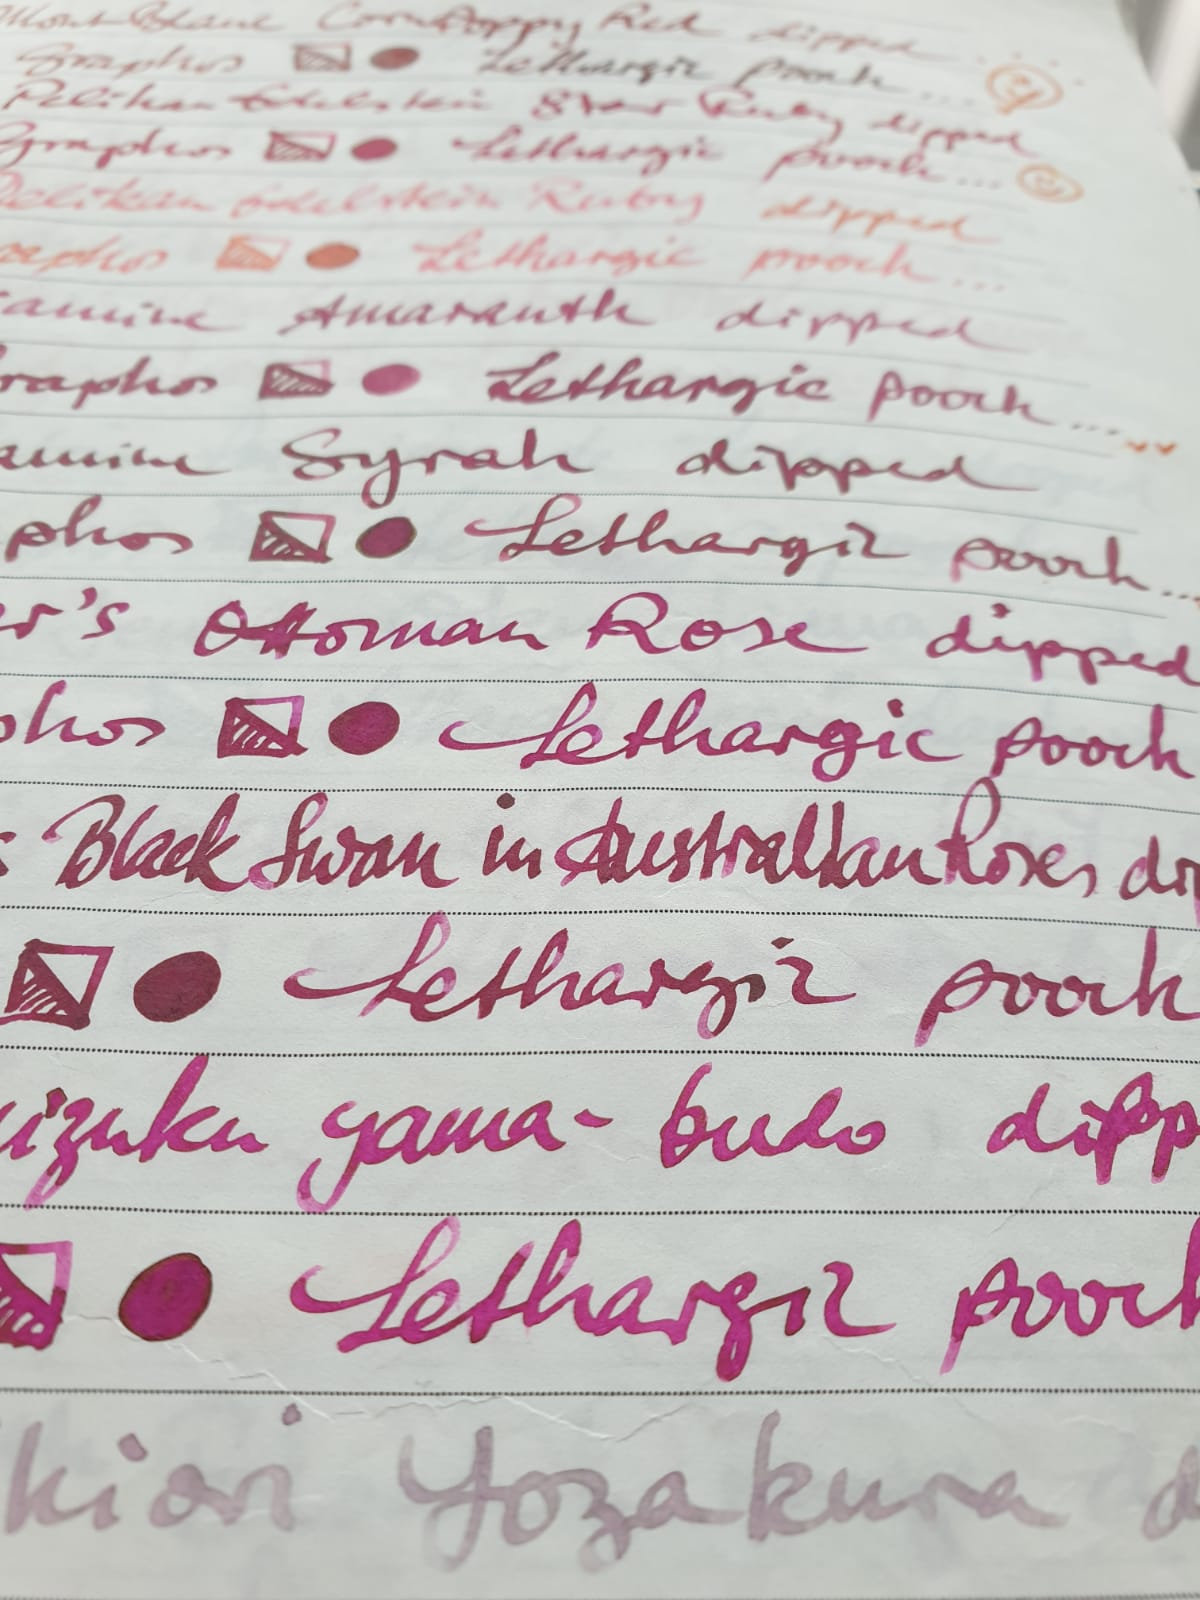 Mont Blanc Corn Poppy Red dipped
Graphos Lethargic pooch...
Pelikan Edelstein Star Ruby dipped
Graphos Lethargic pooch...
Pelikan Edelstein Ruby dipped
raphos Lethargic pooch...
iamine Amaranth dipped
Graphos Lethargic pooch...
amine Syrah dipped
phos Lethargic pooch...
er's Ottoman Rose dipped
phos Lethargic pooch
s Black Swan in Australian Roses dip
Lethargic pooch
uizuku yama-budo dipp
Lethargic pooch
kiori Yozakura d